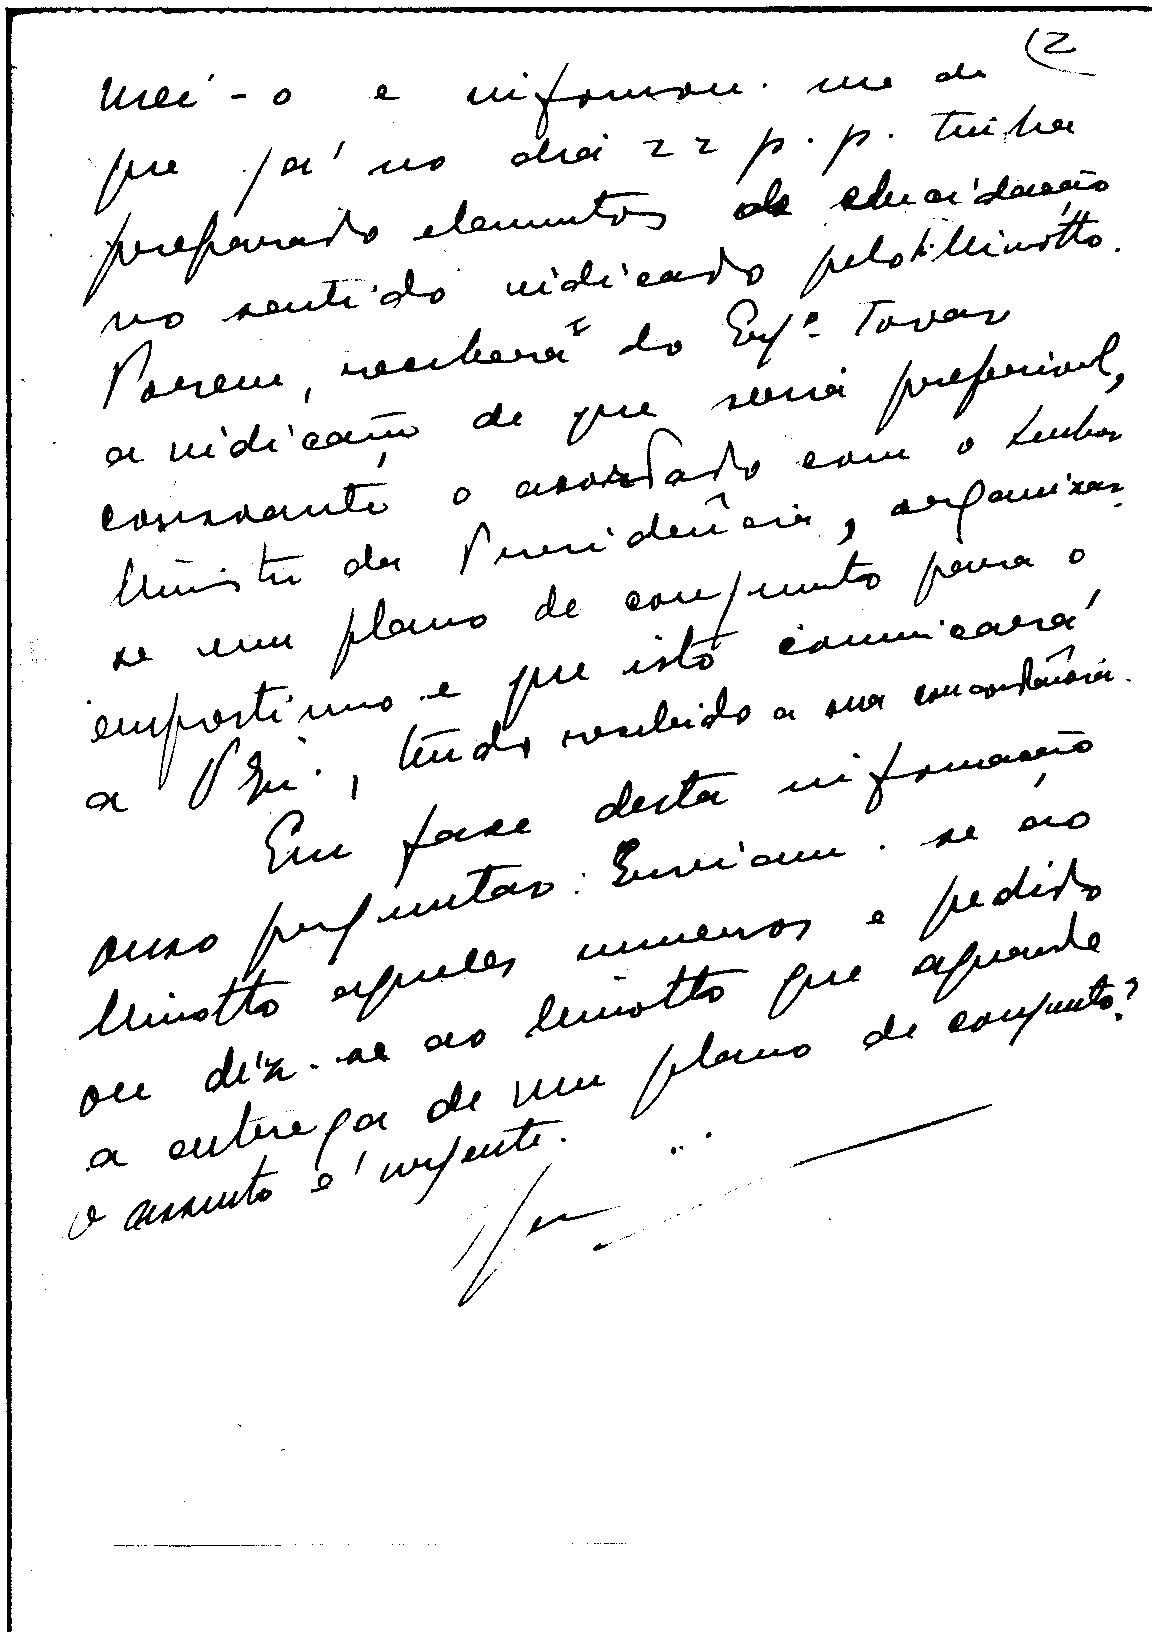 (2
mei-o e informou-me de
que já no dia 22 p.p. tinha
preparado elementos de elucidação
no sentido indicado pelo Minotto.
Porem, recebera do Engº Tovar
a indicação de que seria preferivel,
consoante o acordado com o Senhor
Ministro da Presidência, organizar-
se um plano de conjunto para o
emprestimo e que isto comunicará
a V. Ex., tendo recebido a sua concordância.
Em face desta informação
ouso perguntar: Enviam-se ao
Minotto aqueles numeros e pedido
ou diz-se ao Minotto que aguarde
a entrega de um plano de conjunto?
O assunto é urgente.